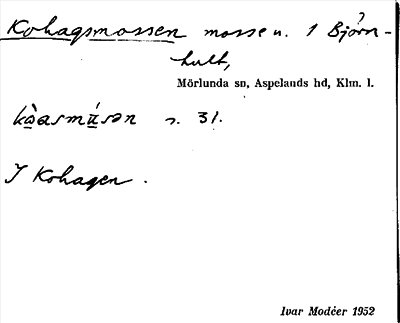 Kohagsmossen mosse n. 1 Björn-
hult,
Mörlunda sn, Aspelands hd, Klm. l.
s. 31.
I Kohagen.
Ivar Modéer 1952